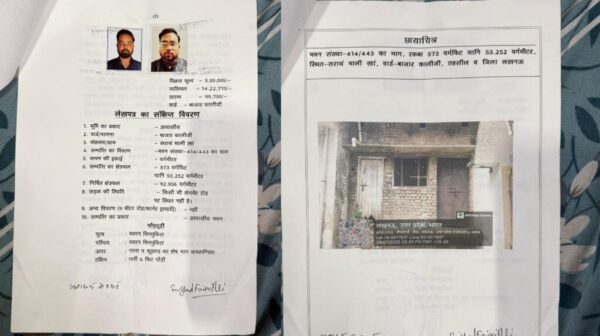 विक्रय मूल्य - 5,00,000/-
मालियत - 14,22,713/-
स्टाम्प - 99,700/-
वार्ड - बाजार कालीजी
लेखपत्र का संक्षिप्त विवरण
1. भूमि का प्रकार - आवासीय
2. वार्ड/परगना - बाजार कालीजी
3. मोहल्ला/ग्राम - सरायं माली खां
4. सम्पत्ति का विवरण - भवन संख्या-414/443 का भाग
5. मापन की इकाई - वर्गमीटर
6. सम्पत्ति का क्षेत्रफल - 573 वर्गफिट
यानि 53.252 वर्गमीटर
7. निर्मित क्षेत्रफल - 92.936 वर्गमीटर
8. सड़क की स्थिति - किसी भी सेगमेंट रोड
पर स्थित नहीं है।
9. अन्य विवरण (9 मीटर रोड/कार्नर इत्यादि) - नहीं
10. सम्पत्ति का प्रकार - आवासीय भवन
चौहद्दी
पूरब :
पश्चिम :
उत्तर :
दक्षिण : गली 6 फिट चौड़ी
छायाचित्र
भवन संख्या-414/443 का भाग, रकबा 573 वर्गफिट यानि 53.252 वर्गमीटर,
स्थित-सरायं माली खां, वार्ड-बाजार कालीजी, तहसील व जिला लखनऊ
GPS Map Camera
लखनऊ, उत्तर प्रदेश, भारत